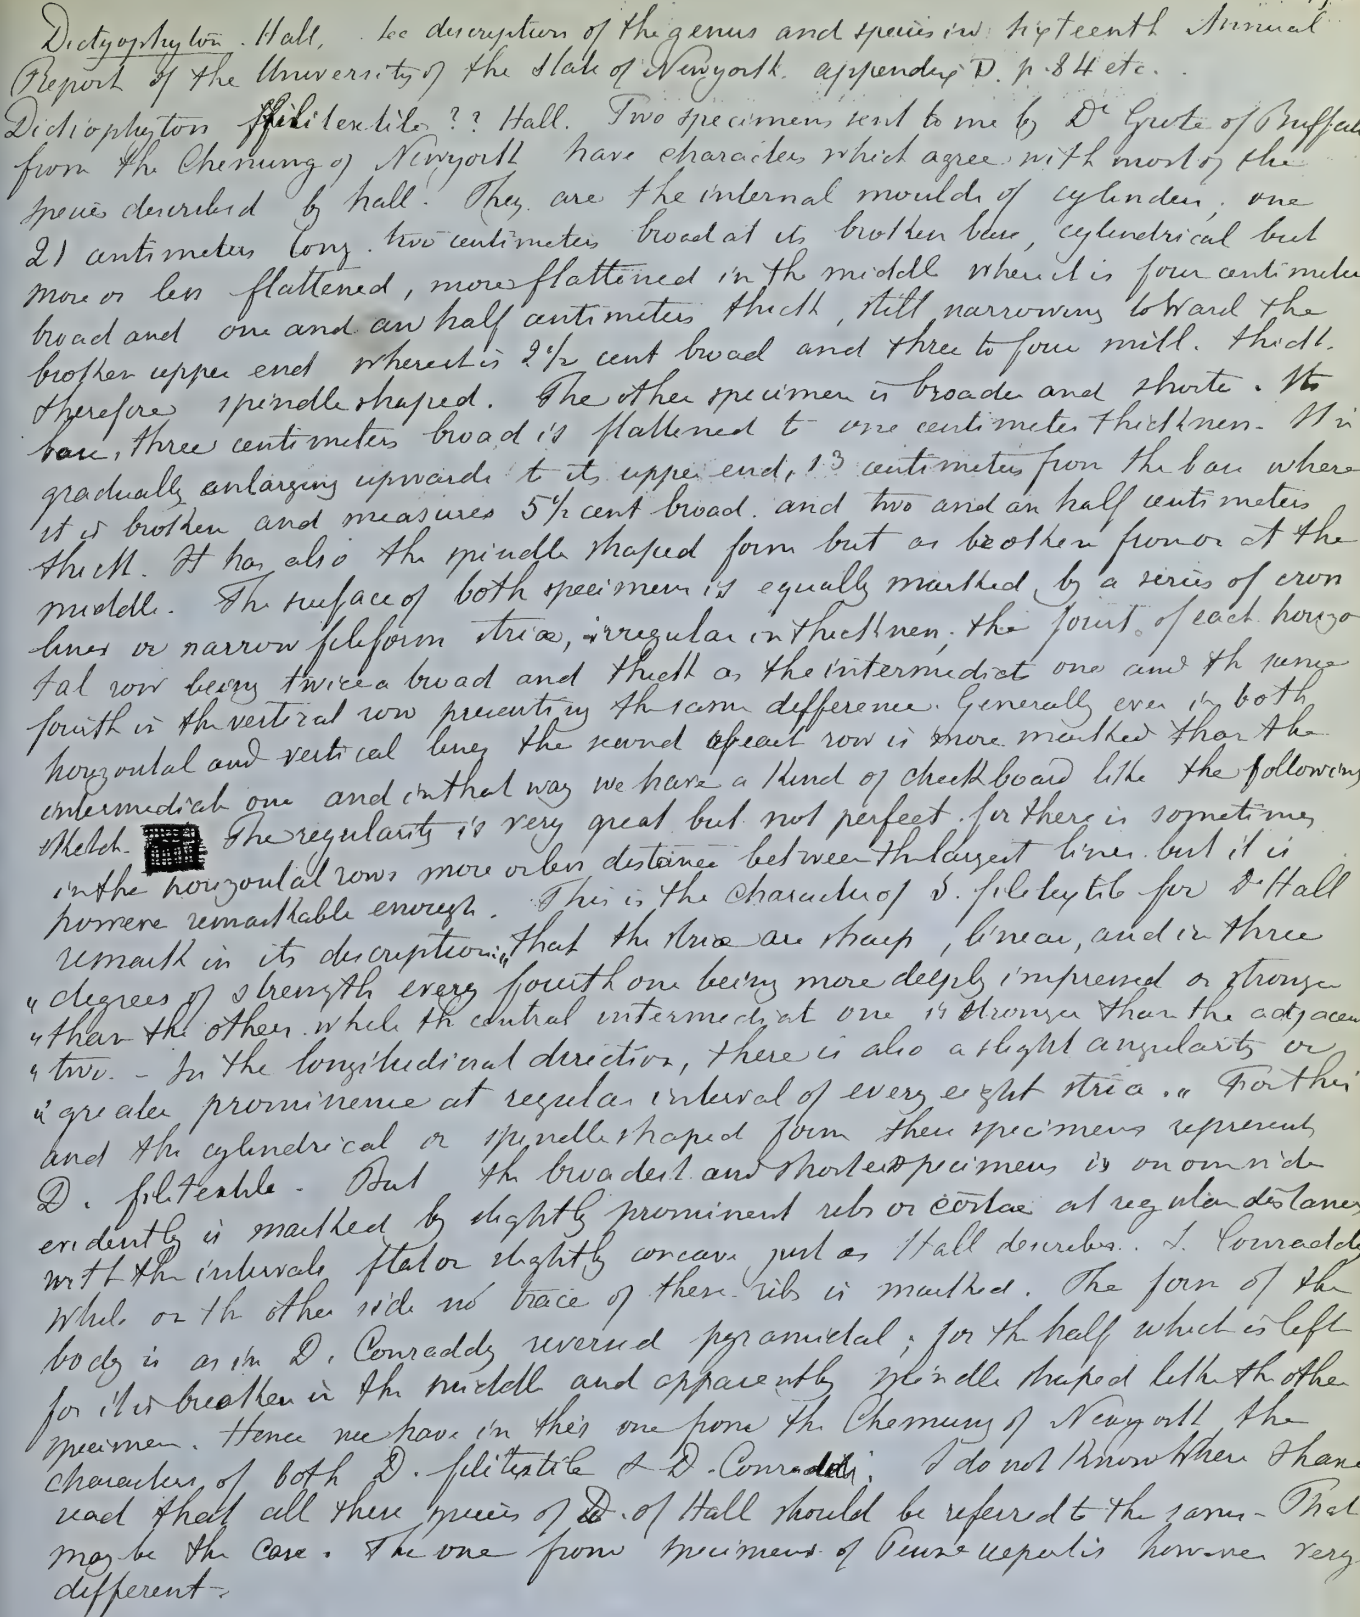 Dictyophyton. Hall. See description of the genus and species in sixteenth Annual
Report of the University of the State of Newyork. appendix D. p. 84 etc.
Dictiophyton filitextile ?? Hall. Two specimens sent to me by Dr Grote of Buffalo
from the Chemung of Newyork have characters which agree with most of the
species described by hall. They are the internal moulds of cylinders, one
21 centimeters long. two centimeters broad at its broken base, cylindrical but
more or less flattened, more flattened in the middle where it is four centimeter
broad and one and an half centimeters thick, still narrowing toward the
broken upper end where it is 2 1/2 cent broad and three to four mill. thick.
therefore spindle shaped. The other specimen is broader and shorter. Its
base, three centimeters broad is flattened to one centimeter thickness. It is
gradually enlarging upwards to its upper end, 13 centimeters from the base where
it is broken and measures 5 1/2 cent broad. and two and an half centimeters
thick. It has also the spindle shaped form but as broken from or at the
middle. The surface of both specimens is equally marked by a series of cross
lines or narrow filiform striae, irregular in thickness, the fourt of each horizo
tal row being twice a broad and thick as the intermediate one and th same
fourth in the vertical row presenting the same difference. Generally even in both
horizontal and vertical lines the second of each row is more marked than the
intermediate one and in that way we have a kind of checkboard like the following
sketch. The regularity is very great but not perfect. for there is sometimes
in the horizontal rows more or less distance between the largest lines. but it is
however remarkable enough. This is the character of D. filitextile for Dr Hall
remark in its description: „that the striae are sharp, linear, and in three
„degrees of strength every fourth one being more deeply impressed or stronger
„than the others. while the central intermediate one is stronger than the adjacent
„two. - In the longitudinal direction, there is also a slight angularity or
„greater prominence at regular interval of every eight stria.„ For this
and the cylindrical or spindle shaped form these specimens represent
D. filitextile. But the broadest and shorter specimens is on one side
evidently is marked by slightly prominent ribs or costae at regular distances
with the intervals flat or slightly concave just as Hall describes. D. Conraddi
while on th other side no trace of these ribs is marked. The form of the
body is as in D. Conraddy reversed pyramidal; for th half which is left
for it is breaken in the middle and apparently spindle shaped like th other
specimen. Hence we have in this one from the Chemung of Newyork the
characters of both D. filitextile & D. Conraddi. I do not know where I have
read that all these species of D. of Hall should be referred to the same - That
may be the case. The one from specimens of is however very
different -